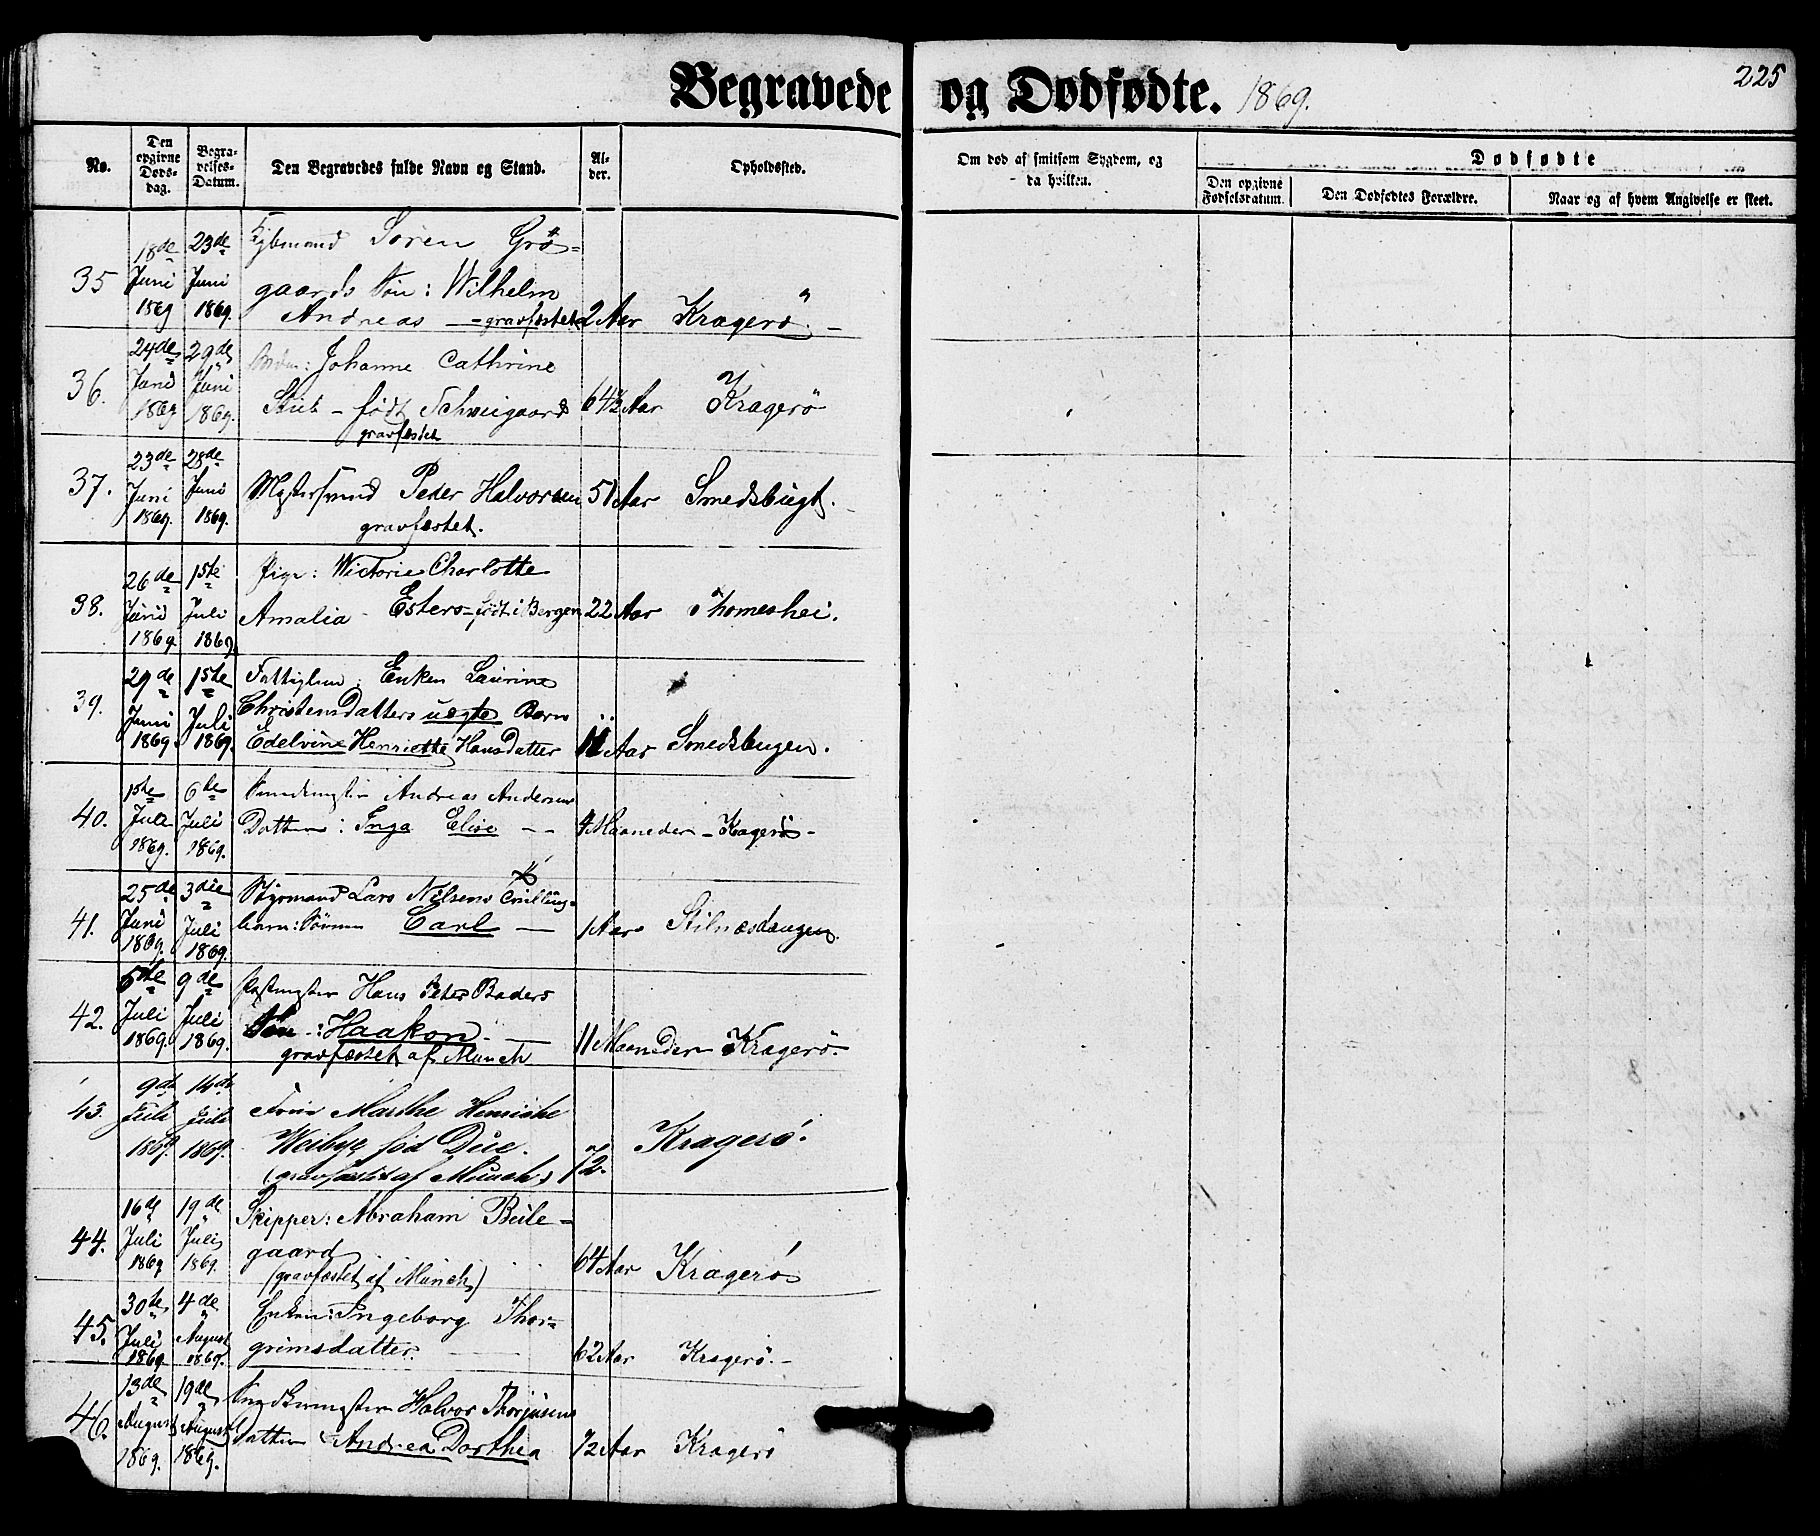 Begravede og Dødfødte. 1869.
225
No.
Den opgivne Døds-dag.
Begra-velses-Datum.
Den Begravedes fulde Navn og Stand.
Al-der.
Opholdssted.
Om død af smitsom Sygdom, og da hvilken.
Dødfødte
Den opgivne Fødselsdatum.
Den Dødfødtes Forældre.
Naar og af hvem Angivelse er skeet.
35
18de Juni 1869
23de Juni 1869.
Søren Grø-
gaards Søn: Wilhelm
Andreas — gravfæstet
2 Aar
Kragerø. -
36.
24de Juni 1869
29de Juni 1869.
Johanne Cathrine
- født Schweigaard
gravfæstet
64½ Aar
Kragerø
37.
23de Juni 1869.
28de Juni 1869.
Peder Halvorsen
gravfæstet.
51 Aar
Smedsbugt.
38.
26de Juni 1869.
1ste Juli 1869.
Pige: Wictorie Charlotte
Amalia - Esters - født i Bergen
22 Aar
Thomeshei.
39.
29de Juni 1869.
1ste Juli 1869.
Fattiglem: Enken Laurine
ChristensDatters uægte Barn
Edelvine Henriette HansDatter
11 Aar
Smedsbugen.
40.
1ste Juli 1869.
6te Juli 1869.
Andreas Andersens
Datter: Inga Elise - -
4 Maaneder - Kragerø -
41.
25de Juni 1869.
3die Juli 1869.
Styrmand Lars Nilsens Tvilling-
barn: Sønnen Carl —
1 Aar
Stilnæsdangen.
42.
5te Juli 1869.
9de Juli 1869.
Postmester Hans Peter Baders
Søn -: Haakon. —
gravfæstet af Münch
11 Maaneder
Kragerø.
43.
9de Juli 1869.
14de Juli 1869.
Marthe Henriette
Weibye fød Due.
(gravfæstet af Münch)
72.
Kragerø.
44.
16de Juli 1869
19de Juli 1869.
Skipper: Abraham Beile-
gaard
(gravfæstet af Münch)
64 Aar
Kragerø
45.
30te Juli 1869
4de August 1869.
Enken: Ingeborg Thor-
grimsdatter. —
62 Aar
Kragerø. -
46.
13de August 1869.
19de August 1869.
Halvor Thorjusens
Datter Andrea Dorthea
½ Aar
Kragerø